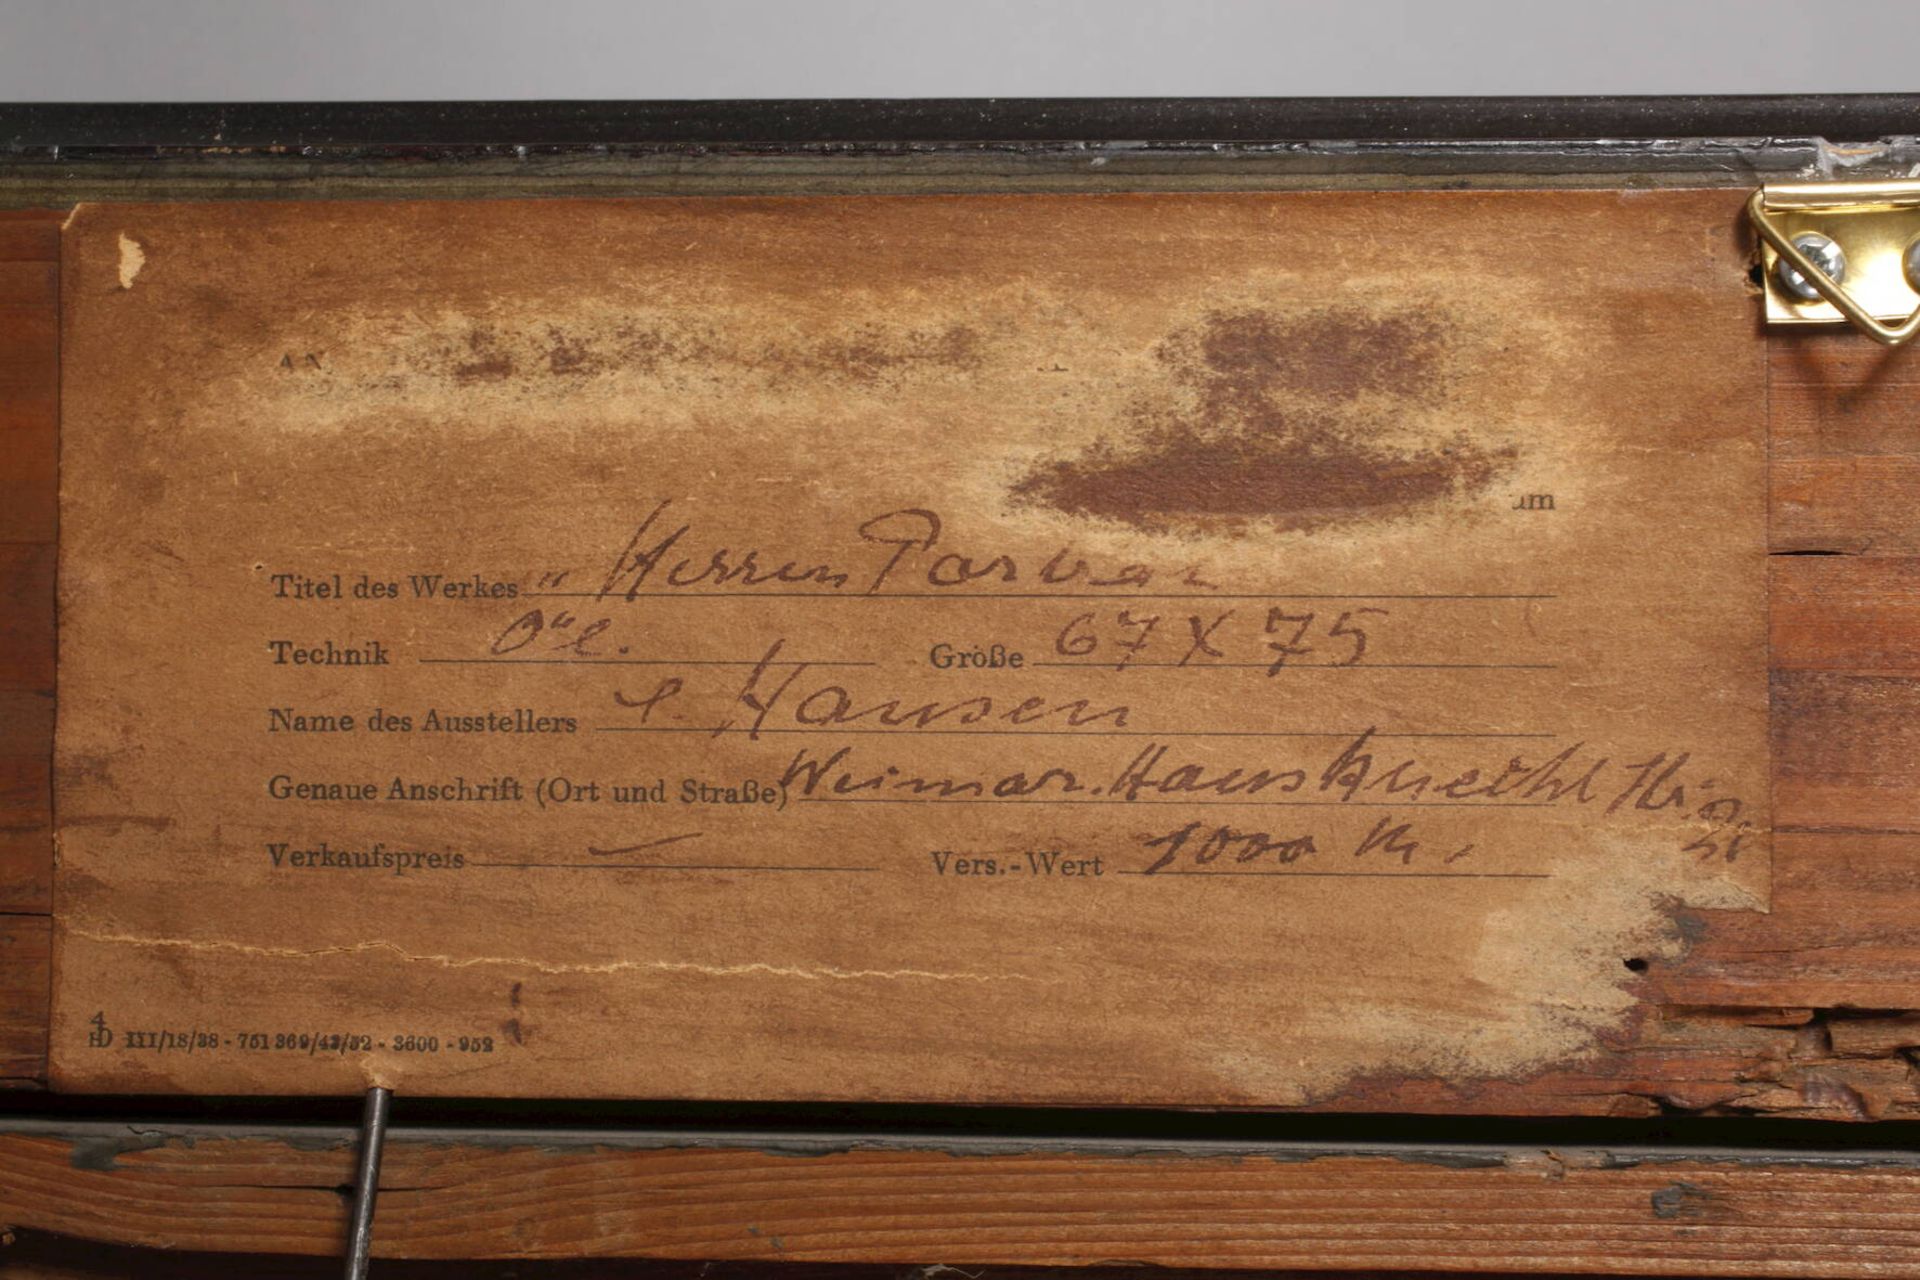 AN
um
Titel des Werkes „Herren
Technik Öl. Größe 67 X 75
Name des Ausstellers Hansen
Genaue Anschrift (Ort und Straße) Weimar. Hausknecht Str.
Verkaufspreis — Vers.-Wert 1000 M.
III/18/38 - 751 369/43/52 - 3600 - 952